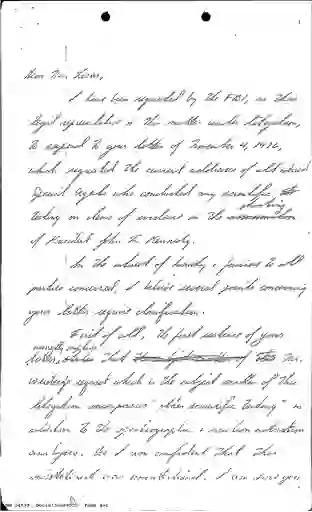 Dear Mr. 
I have been requested by the FBI, as their
legal representative in the matter under litigation,
to respond to your letter of November 4, 1976,
which requested the current addresses of all
Special Agents who conducted any scientific
shooting
testing on items of evidence in the
of President John F. Kennedy.
In the interest of honesty & fairness to all
parties concerned, I believe several points concerning
your letter require clarification.
First of all, the first sentence of your
letter, that Mr.
request which is the subject matter of this
litigation encompasses "other scientific testing" in
addition to the spectrographic & neutron activation
analyses. As I am confident that this
was unintentional, I am sure you